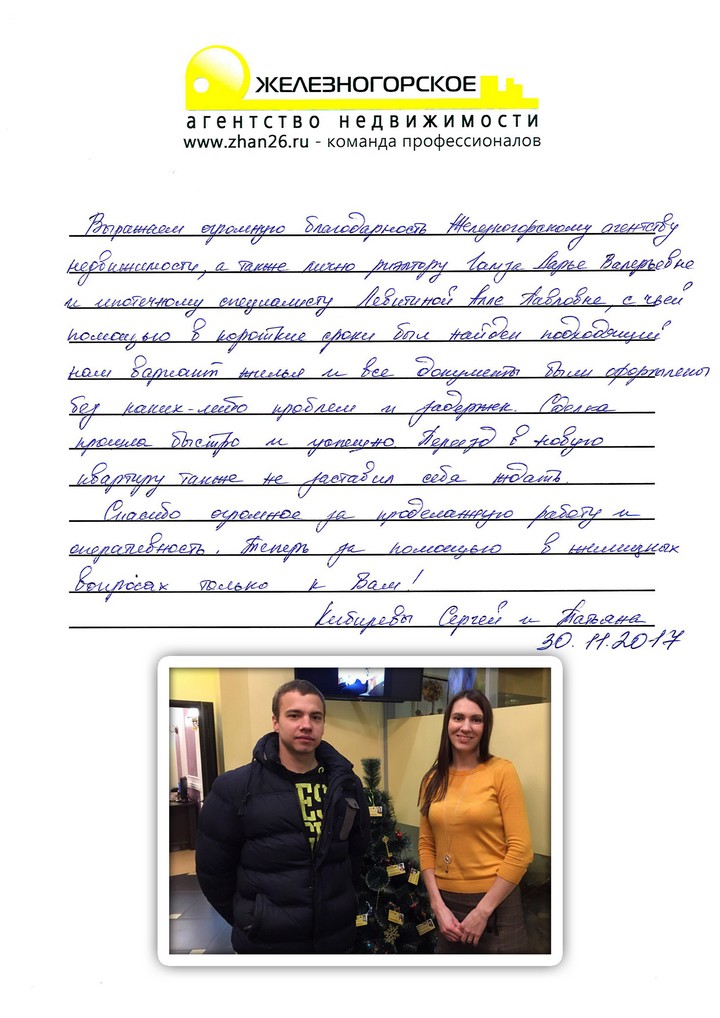 ЖЕЛЕЗНОГОРСКОЕ
агентство недвижимости
www.zhan26.ru - команда профессионалов
Выражаем огромную благодарность Железногорскому агентству
недвижимости, а также лично риэлтору Дарье Валерьевне
и ипотечному специалисту Левитиной Алле Павловне, с чьей
помощью в короткие сроки был найден подходящий
нам вариант жилья и все документы были оформлены
без каких-либо проблем и задержек. Сделка
прошла быстро и успешно. Переезд в новую
квартиру также не заставил себя ждать.
Спасибо огромное за проделанную работу и
оперативность. Теперь за помощью в жилищных
вопросах только к Вам!
Кибиревы Сергей и Татьяна
30.11.2017